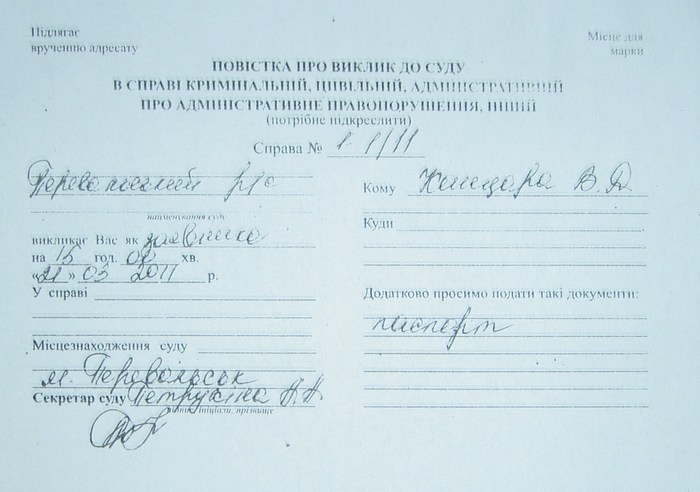 Підлягає
врученню адресату
Місце для
марки
ПОВІСТКА ПРО ВИКЛИК ДО СУДУ
В СПРАВІ КРИМІНАЛЬНІЙ, ЦИВІЛЬНІЙ, АДМІНІСТРАТИВНІЙ
ПРО АДМІНІСТРАТИВНЕ ПРАВОПОРУШЕННЯ, ІНШІЙ
(потрібне підкреслити)
Справа №
найменування суду
викликає Вас як заявника
на 15 год. 00 хв.
«21» 03 2011 р.
У справі
Місцезнаходження суду
м. Перевальськ
Секретар суду
підпис, ініціали, прізвище
Кому В. Д.
Куди
Додатково просимо подати такі документи:
паспорт